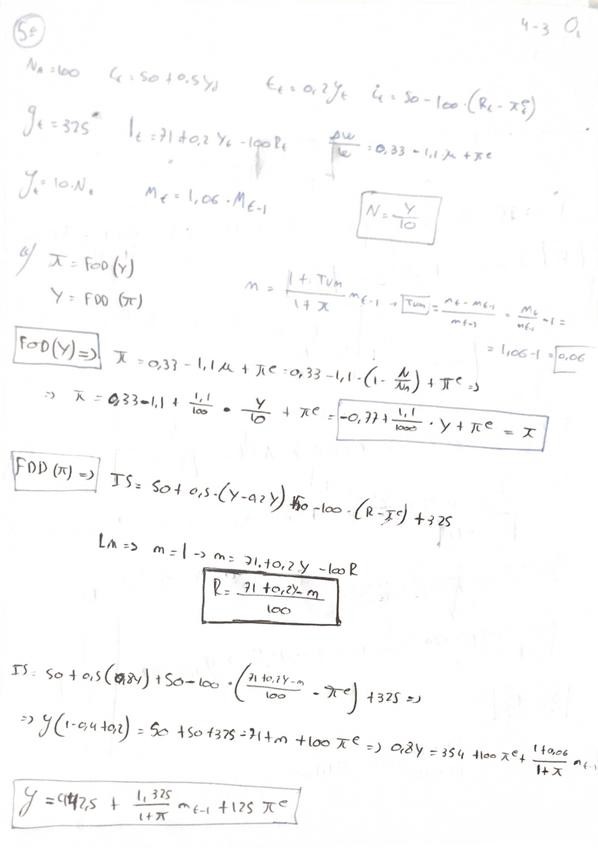 5ª
4-3 O₁
Nₐ=100 Cₜ=50+0.5Y_d tₜ=0,2yₜ iₜ=50-100·(Rₜ-πᵉₜ)
gₜ=325 lₜ=71+0,2Yₜ-100Rₜ Δw/w=0,33-1,1μ+πᵉ
yₜ=10·Nₐ Mₜ=1,06·Mₜ₋₁ N=Y/10
a) π=FOD(Y)
Y=FDD(π)
m=(1+TVM)/(1+π) mₜ₋₁ → TVM=(mₜ-mₜ₋₁)/mₜ₋₁=Mₜ/mₜ₋₁-1=
=1,06-1=0,06
FOD(Y)⇒ π=0,33-1,1μ+πᵉ=0,33-1,1·(1-N/Nₐ)+πᵉ⇒
⇒ π=0,33-1,1+1,1/100·Y/10+πᵉ=-0,77+1,1/1000·Y+πᵉ=π
FDD(π)⇒ IS=50+0,5·(Y-0,2Y)+50-100·(R-πᵉ)+325
Lm⇒ m=l→m=71+0,2Y-100R
R=(71+0,2Y-m)/100
IS: 50+0,5(0,8Y)+50-100·((71+0,2Y-m)/100-πᵉ)+325⇒
⇒ y(1-0,4+0,2)=50+50+325-71+m+100πᵉ⇒0,8Y=354+100πᵉ+(1+0,06)/(1+π) mₜ₋₁
y=442,5+1,325/(1+π) mₜ₋₁+125πᵉ